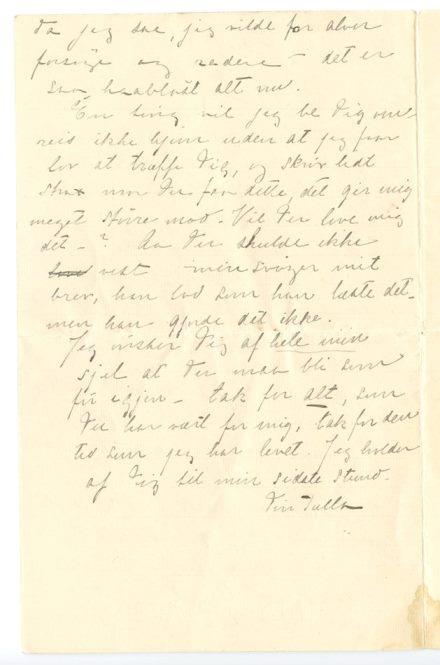 da jeg saa, jeg vilde for alvor
forsøge og radere – det er
saa haabløst alt nu.
En ting vil jeg be Dig om
reis ikke hjem uden at jeg faar
lov at træffe Dig, og skriv lidt
strax naar Du faar dette, det gir mig
meget større mod. Vil Du love mig
det – ? Aa Du skulde ikke
vist min svoger mit
brev, han lod som han læste det –
men han gjorde det ikke.
Jeg ønsker Dig af hele min
sjel at Du maa bli som
før igjen – tak for alt, som
Du har vært for mig, tak for den
tid som jeg har levet. Jeg holder
af Dig til min sidste stund.
Din Tulla